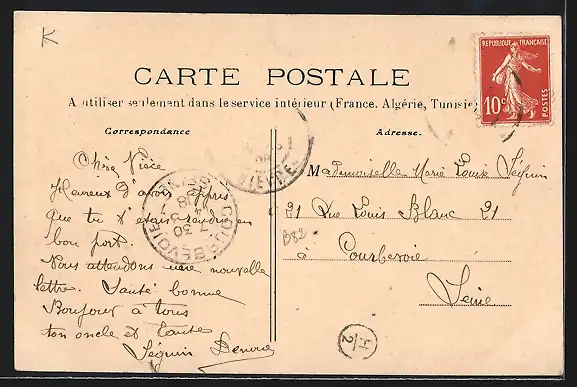 K
REPUBLIQUE FRANÇAISE
10c
POSTES
CARTE POSTALE
A utiliser seulement dans le service intérieur (France, Algérie, Tunisie
Correspondance
Adresse.
Chère Nièce
Heureux d'avoir appris
que tu t'étais rendue en
bon port.
Nous attendons une nouvelle
lettre. Santé bonne
Bonjour à tous
ton oncle et tante
Séguin
Mademoiselle Marie Louise Séguin
21 Rue Louis Blanc 21
à Courbevoie
Seine
COURBEVOIE
7 30
NIÈVRE
B82
H
2